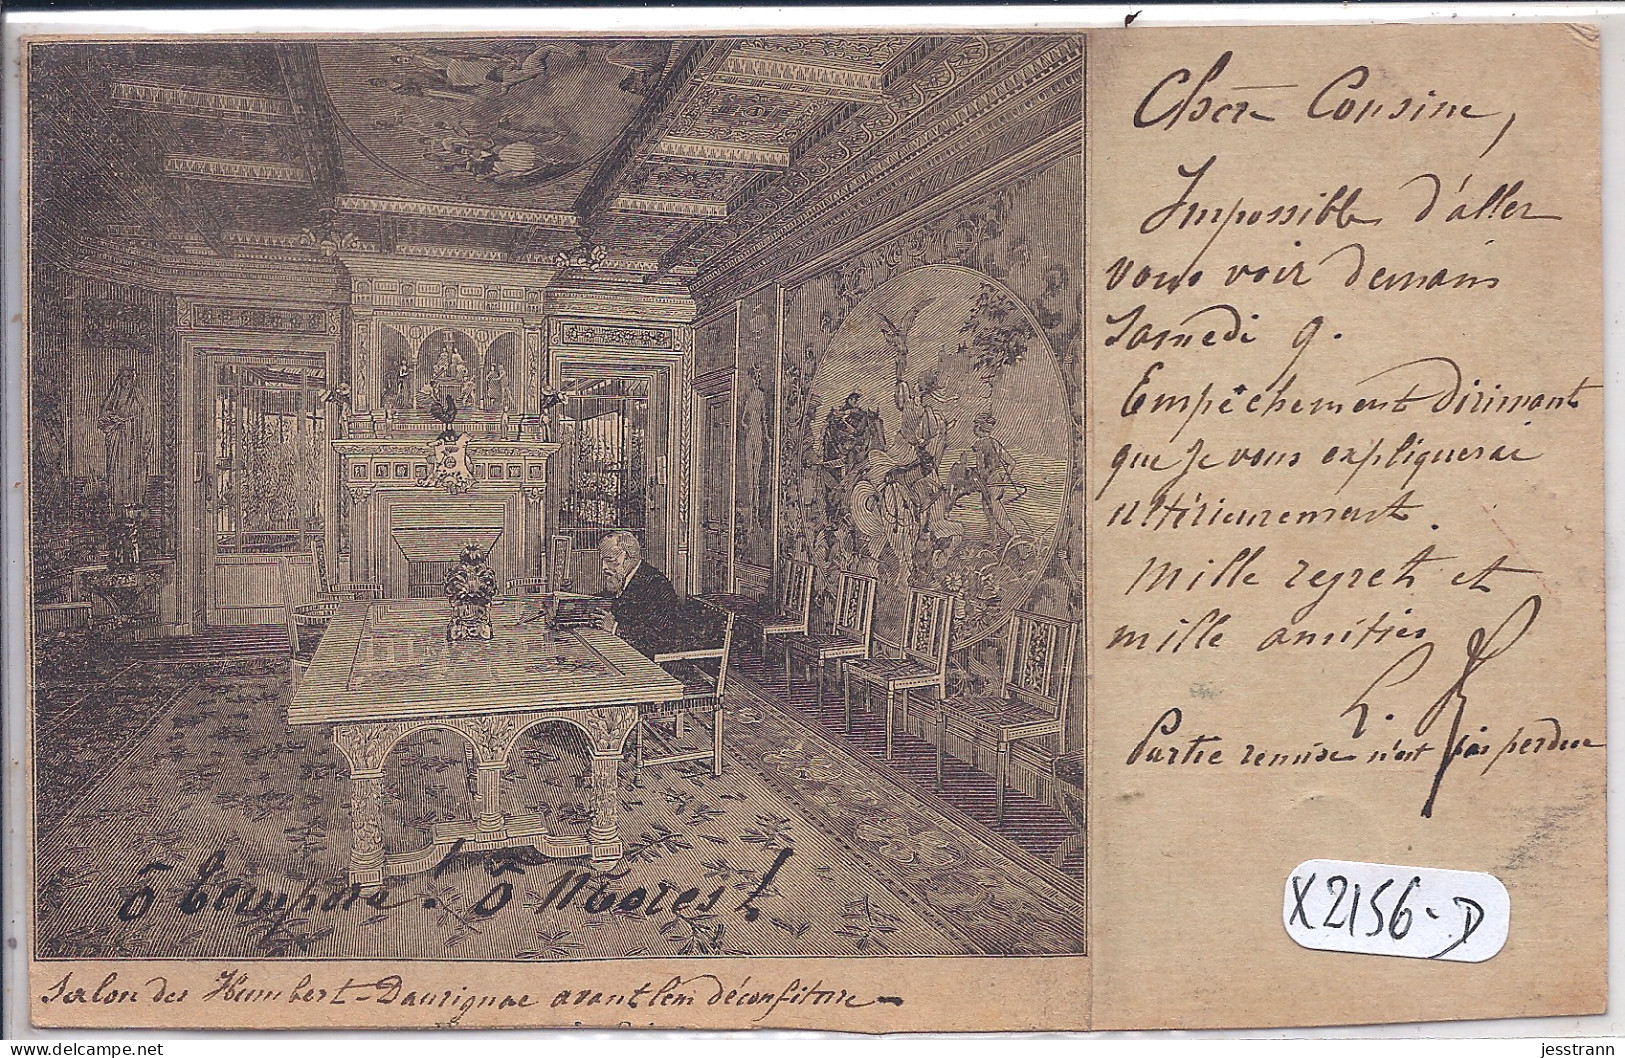 Chère Cousine,
Impossible d'aller
vous voir demain
Samedi 9.
Empêchement dirimant
que je vous expliquerai
ultérieurement.
Mille regrets et
mille amitiés
Partie remise n'est pas perdue
ô tempora! ô Mores!
Salon des Humbert-Daurignac avant leur déconfiture
X2156-D
jesstrann